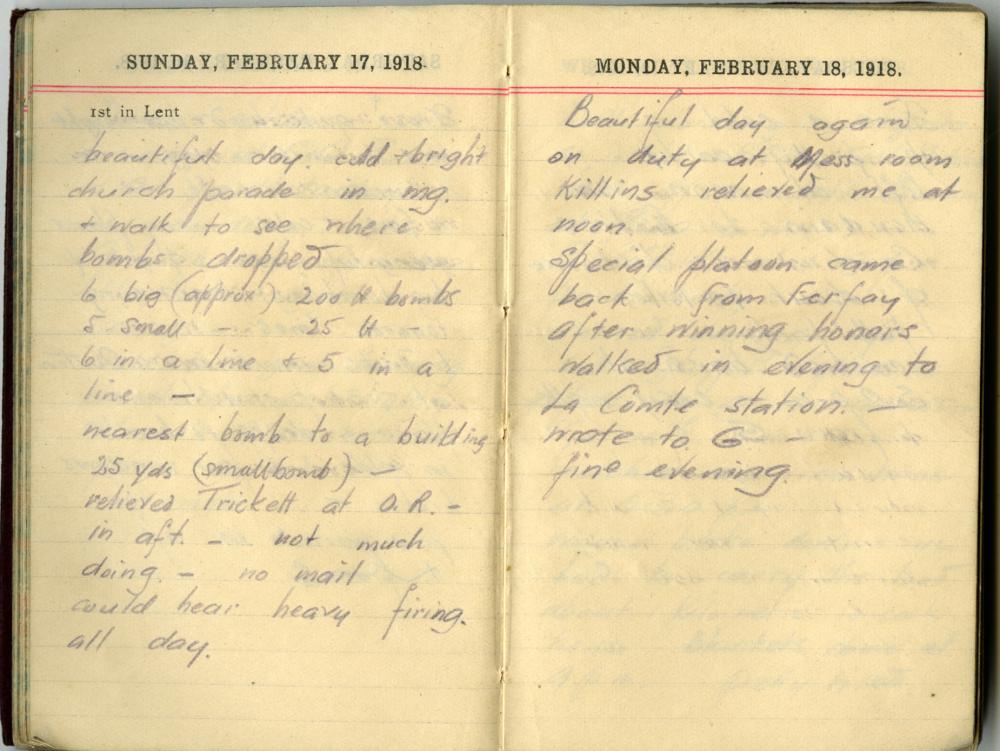 SUNDAY, FEBRUARY 17, 1918
1st in Lent
beautiful day. cold + bright
church parade in mg.
+ walk to see where
bombs dropped
6 big (approx) 200 lb bombs
5 small — 25 lb
6 in a line + 5 in a
line —
nearest bomb to a building
25 yds (small bomb) —
relieved Trickett at O.R. -
in aft. - not much
doing - no mail
could hear heavy firing.
all day.
MONDAY, FEBRUARY 18, 1918.
Beautiful day again
on duty at Mess room
Killins relieved me at
noon.
Special platoon came
back from Ferfay
after winning honors
walked in evening to
La Comte station. —
wrote to G -
fine evening.